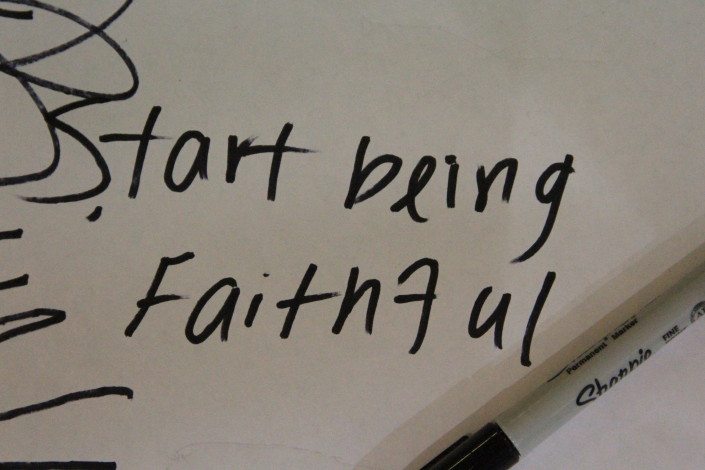 Start being
Faithful
Permanent Marker
Sharpie
FINE